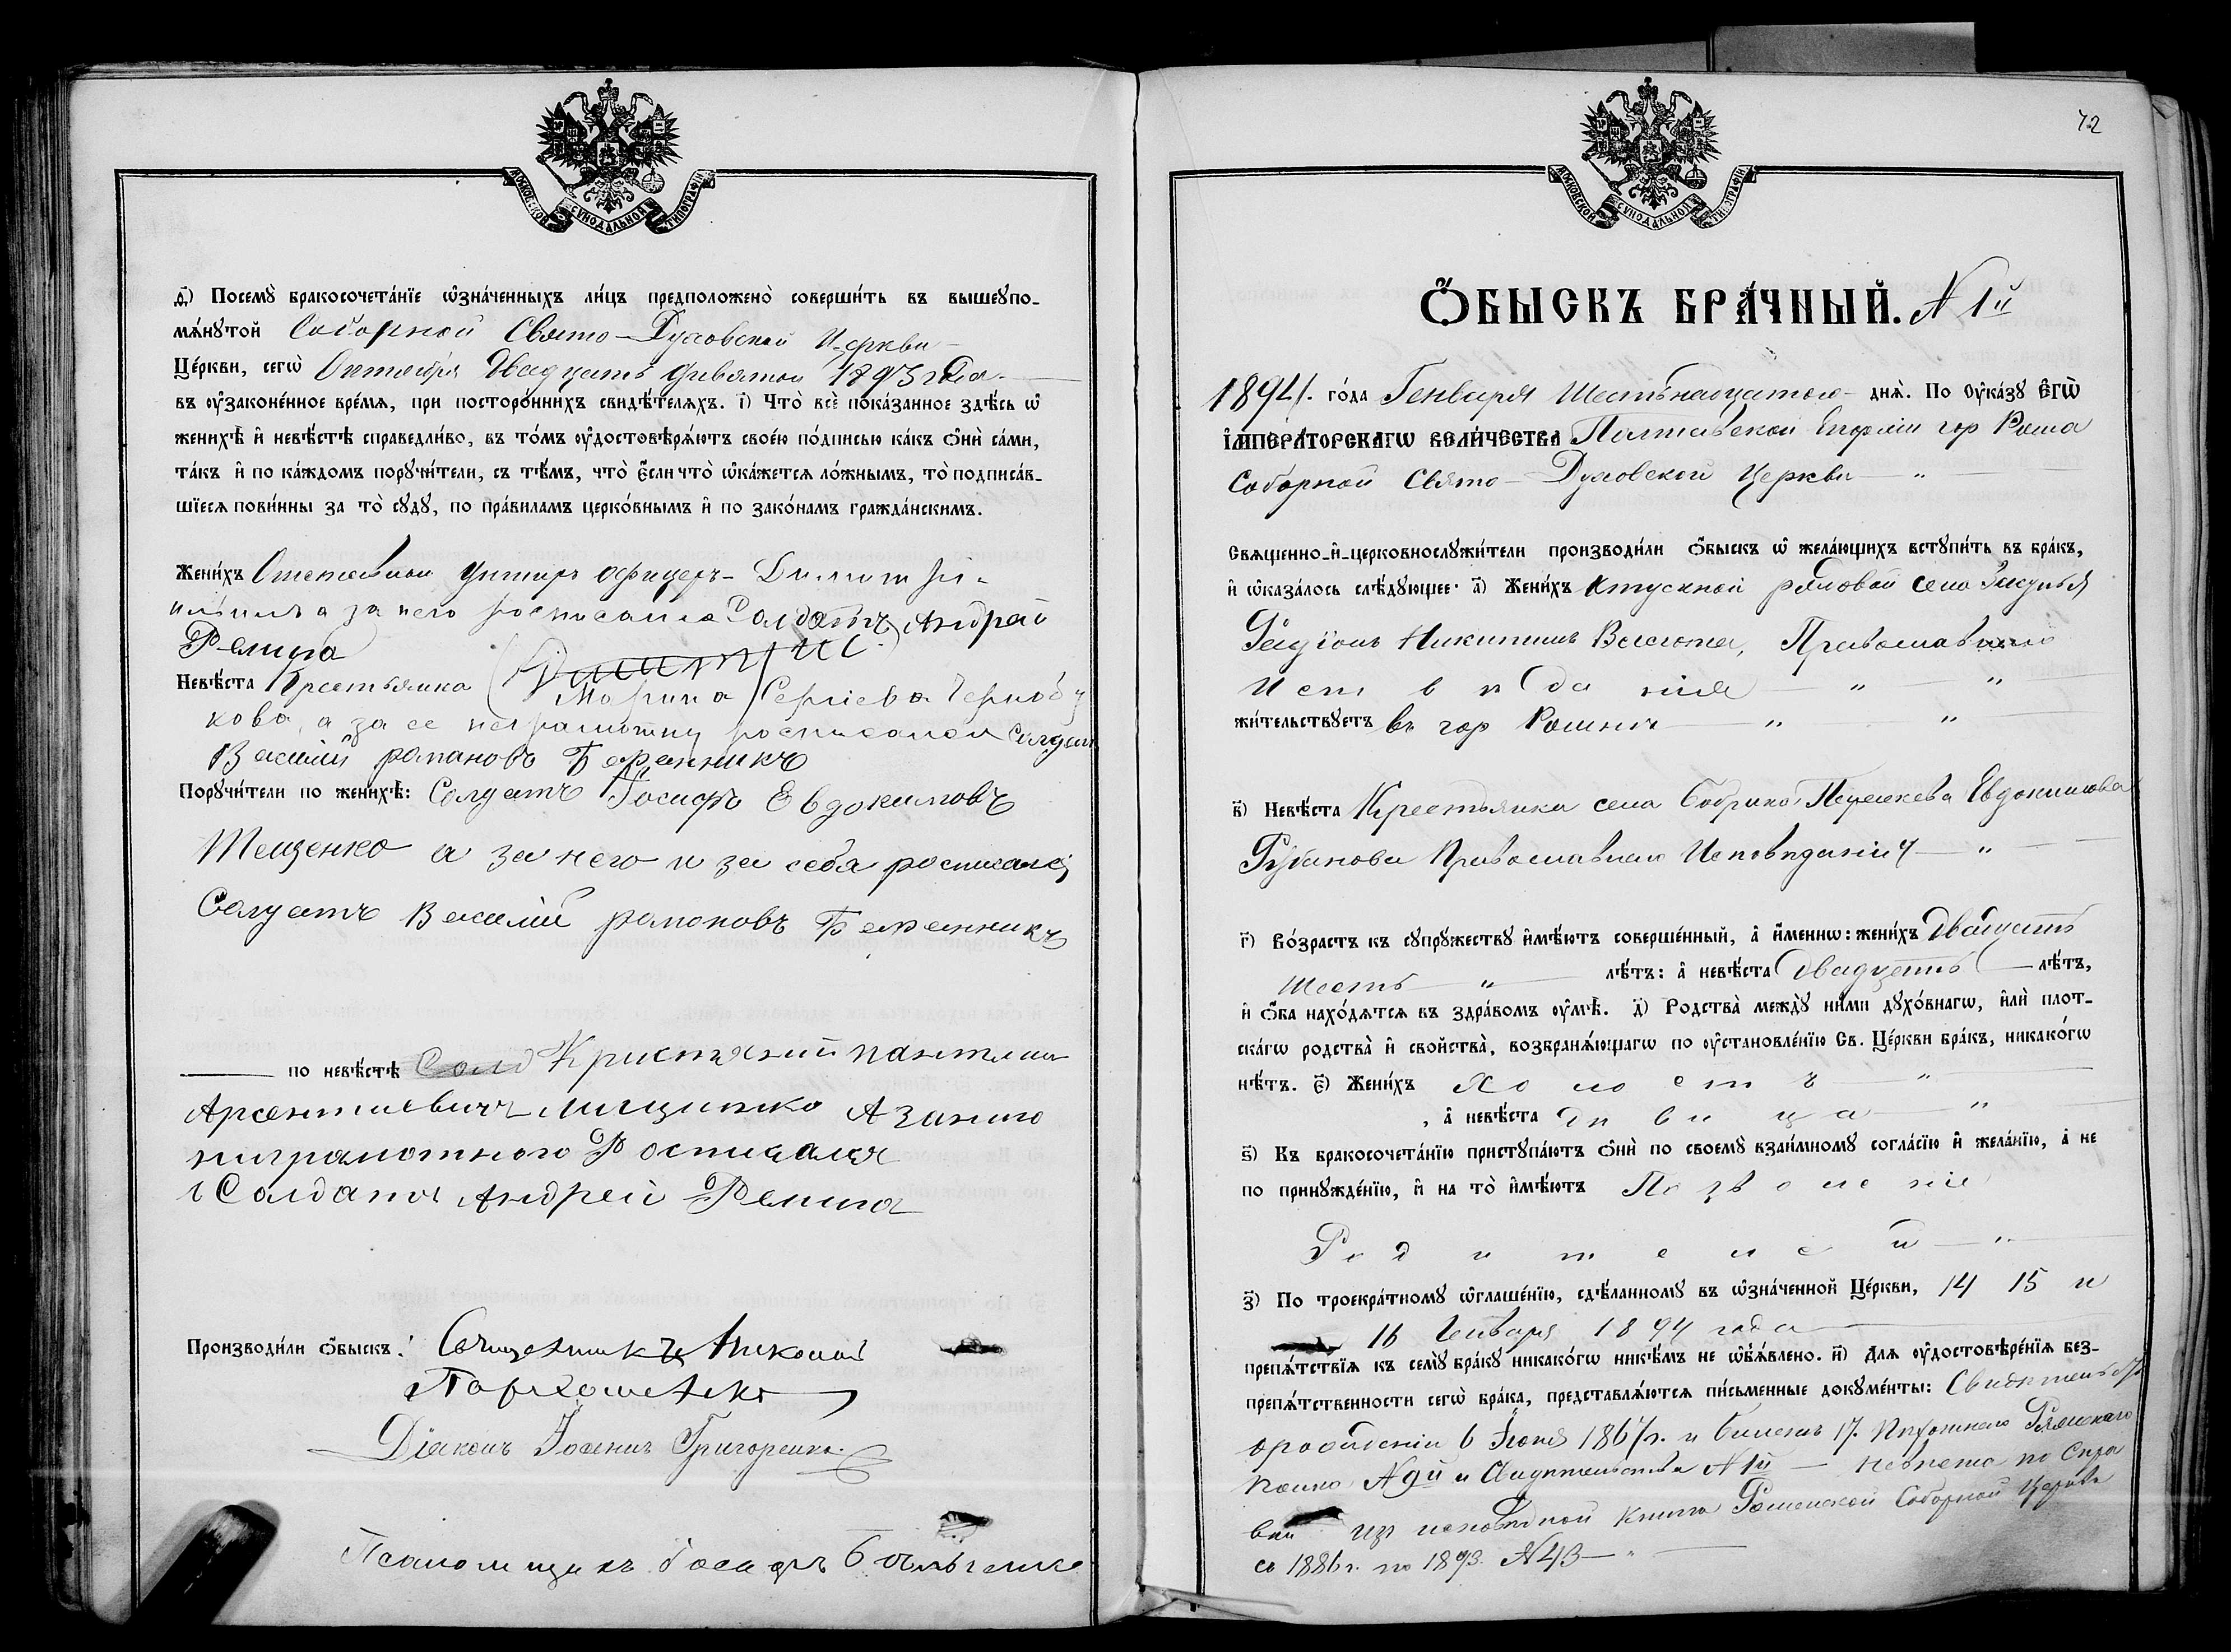 МОСКОВСКОЙ СѴНОДАЛЬНОЙ ТИПОГРАФІИ
ѳ҃) Посемꙋ̀ бракосочета́нїе ѡ҆зна́ченныхъ ли́цъ предположено̀ соверши́ть въ вышеꙋпо-
мѧ́нꙋтой Соборной Свято-Духовской Церкви
Це́ркви, сегѡ̀ Октября Двадцать девятого 1893 года
въ ᲂу҆законе́нное вре́мѧ, при посторо́ннихъ свидѣ́телѧхъ. і҃) Что̀ всѐ пока́занное здѣ́сь ѡ҆
женихѣ̀ и҆ невѣ́стѣ справедли́во, въ то́мъ ᲂу҆достовѣрѧ́ютъ свое́ю по́дписью ка́къ ѻ҆нѝ са́ми,
та́къ и҆ по ка́ждомъ порꙋчи́тели, съ тѣ́мъ, что̀ є҆́сли что̀ ѡ҆ка́жетсѧ ло́жнымъ, то̀ подписа́в-
шїесѧ пови́нны за то̀ сꙋдꙋ̀, по пра́виламъ церко́внымъ и҆ по зако́намъ гражда́нскимъ.
Жени́хъ унтиръ офицеръ
а за него росписался Солдатъ Андрей
Репица
Невѣ́ста Крестьянка Марина Сергіева
кова, а за ее неграмотну росписался Салдат
Василий романовъ Баранникъ
Порꙋчи́тели по женихѣ̀: Салдатъ Іосифъ Евдокимовъ
Тещенко а за него и за себя росписался
Салдатъ Василий романовъ Баранникъ
по невѣ́стѣ
Арсентиевичъ А занего
ниграмотного Росписался
Солдатъ Андрей Репица
Производи́ли ѻ҆́быскъ: Священникъ Николай
Пархоменко
Діаконъ Григоренко
Псаломщикъ Іосифъ
72
МОСКОВСКОЙ СѴНОДАЛЬНОЙ ТИПОГРАФІИ
Ѻ҆́БЫСКЪ БРА́ЧНЫЙ. N 1й
1894. го́да Генваря Шестьнадцатого днѧ̀. По ᲂу҆ка́зꙋ Є҆ГѠ̀
І҆МПЕРА́ТОРСКАГѠ ВЕЛИ́ЧЕСТВА Полтавской Епархіи гор Ромна
Соборной Свято-Духовской Церкви
Свѧще́нно-и҆-церковнослꙋжи́тели производи́ли ѻ҆́быскъ ѡ҆ жела́ющихъ встꙋпи́ть въ бра́къ,
и҆ ѡ҆каза́лось слѣ́дꙋющее: а҃) Жени́хъ Отускной рядовой села
Никитинъ Православного
Исповѣданія
жи́тельствꙋетъ въ гор Ромнѣ
в҃) Невѣ́ста Крестьянка села Бобрика Евдокимова
Рубанова Православного Исповѣданія
г҃) Во́зрастъ къ сꙋпрꙋ́жествꙋ и҆мѣ́ютъ соверше́нный, а҆ и҆́меннѡ: жени́хъ двадцать
шесть лѣ́тъ: а҆ невѣ́ста двадцать лѣ́тъ,
и҆ ѻ҆́ба нахо́дѧтсѧ въ здра́вомъ ᲂу҆мѣ̀. д҃) Родства̀ междꙋ̀ ни́ми дꙋхо́внагѡ, и҆лѝ плот-
ска́гѡ родства̀ и҆ сво́йства, возбранѧ́ющагѡ по ᲂу҆становле́нїю Св. Це́ркви бра́къ, никако́гѡ
нѣ́тъ. є҃) Жени́хъ Холостъ
, а҆ невѣ́ста дѣвица
ѕ҃) Къ бракосочета́нїю пристꙋпа́ютъ ѻ҆нѝ по своемꙋ̀ взаи́мномꙋ согла́сїю и҆ жела́нїю, а҆ не
по принꙋжде́нїю, и҆ на то̀ и҆мѣ́ютъ Позволеніе
Родителей
з҃) По троекра́тномꙋ ѡ҆глаше́нїю, сдѣ́ланномꙋ въ ѡ҆зна́ченной Це́ркви, 14 15 и
16 Генваря 1894 года
препѧ́тствїѧ къ семꙋ̀ бра́кꙋ никако́гѡ никѣ́мъ не ѡ҆б̾ѧ́влено. и҃) Длѧ ᲂу҆достовѣре́нїѧ без-
препѧ́тственности сегѡ̀ бра́ка, представлѧ́ютсѧ пи́сьменные докꙋме́нты: Свидѣтельство
орожденіи 6 Іюня 1867г. и билетъ 17. Пѣхотного
полка N 9й и N 1й — невѣста по Спра
вки изъ исповѣдной книги Роменской Соборной Церкви
съ 1886г. по 1893. N 43